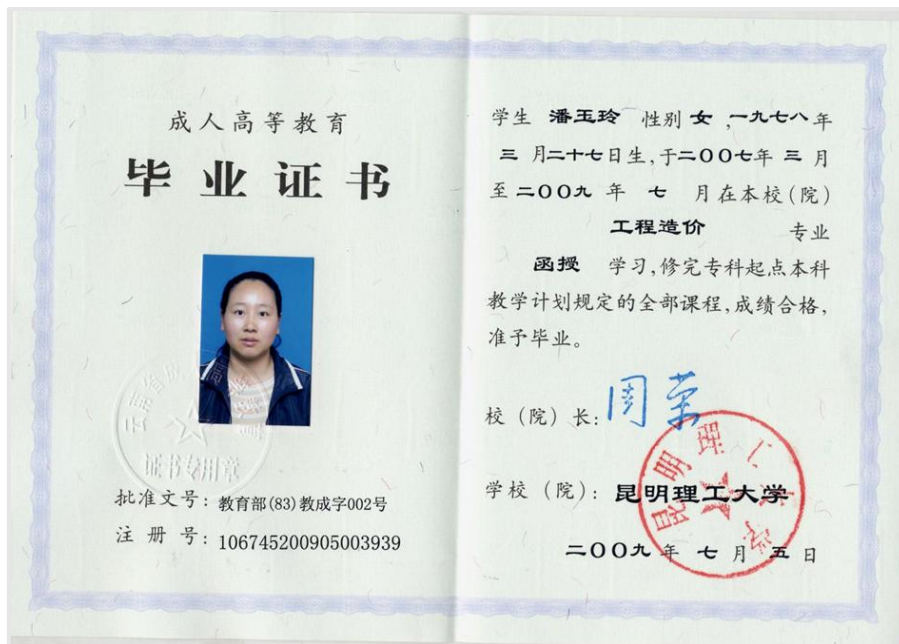 成人高等教育
毕业证书
云南省
证书专用章
批准文号：教育部(83)教成字002号
注册号：106745200905003939
学生 潘玉玲 性别 女，一九七八年
三月二十七日生，于二〇〇七年 三 月
至二〇〇九 年 七 月在本校（院）
工程造价 专业
函授 学习，修完专科起点本科
教学计划规定的全部课程，成绩合格，
准予毕业。
校（院）长：周荣
学校（院）：昆明理工大学
昆明理工大学
二〇〇九 年 七 月 五 日